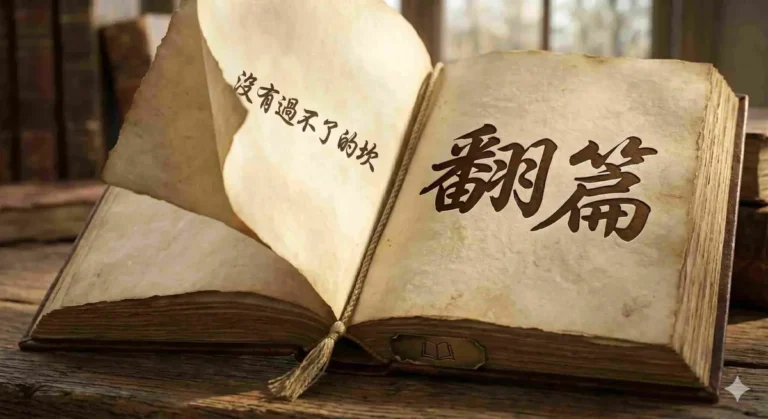 沒有過不了的坎
翻篇